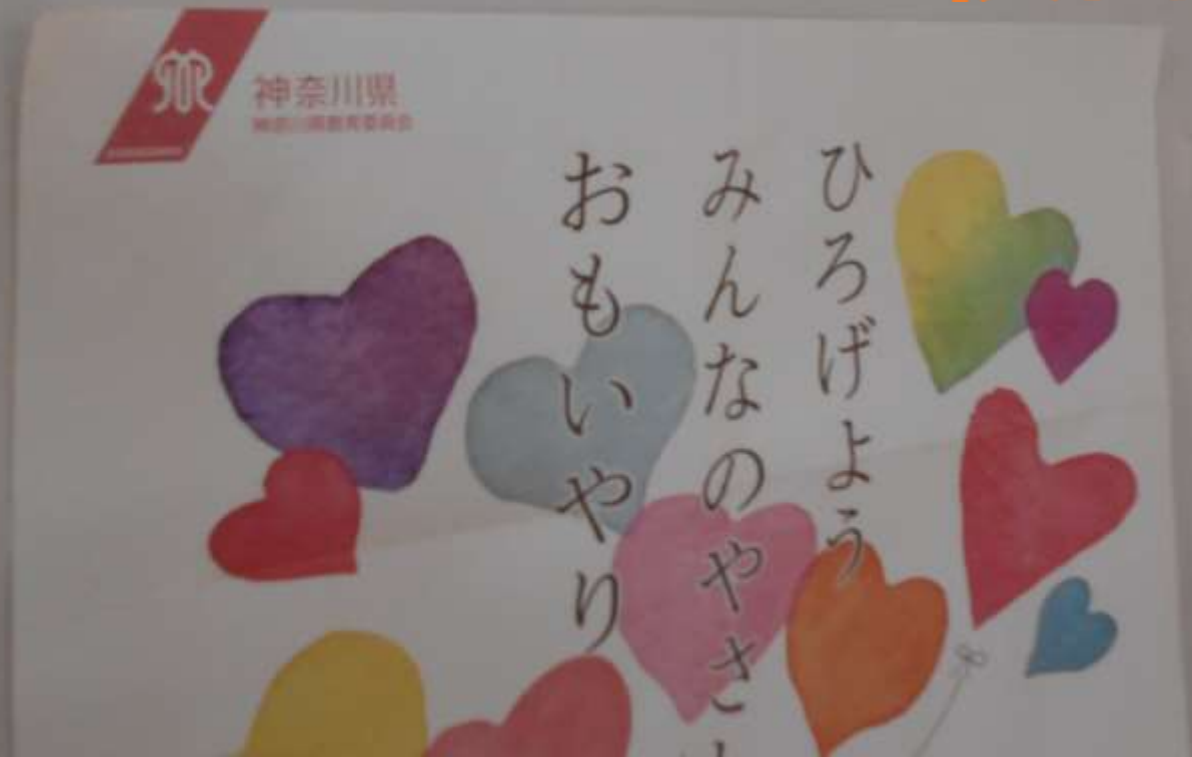 神奈川県
神奈川県教育委員会
ひろげよう
みんなのやさ
おもいやり